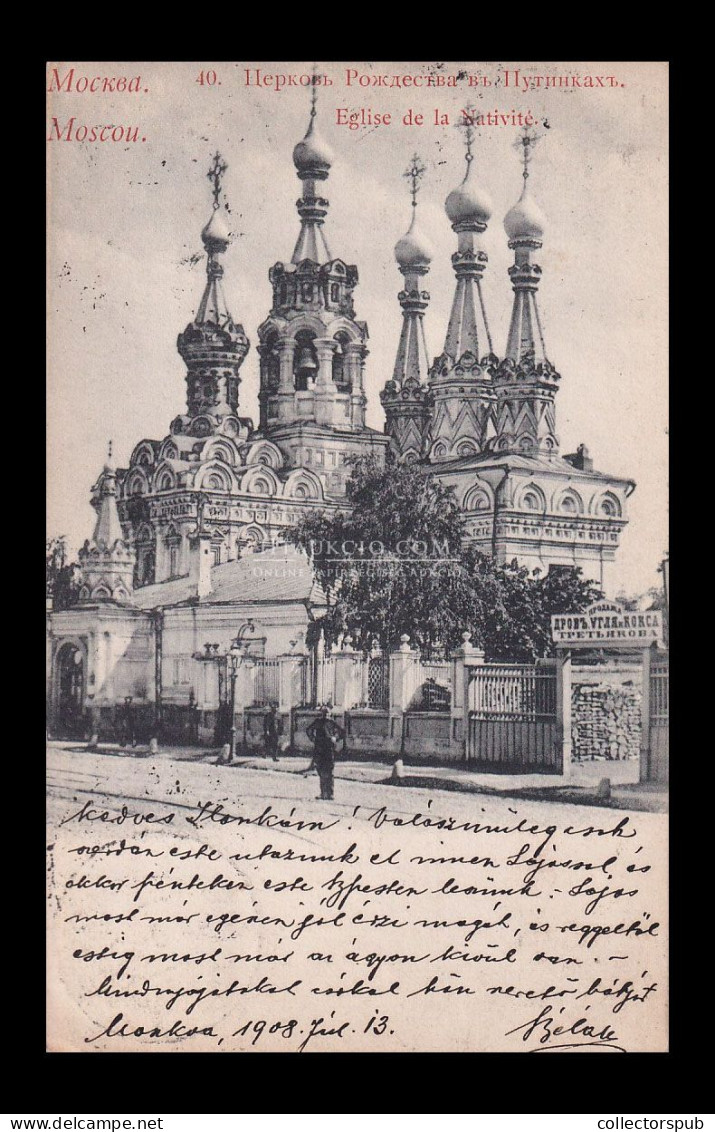 Москва. 40. Церковь Рождества въ Путинкахъ.
Moscou. Eglise de la Nativité.
AUKCIO.COM
ONLINE PAPIRRÉGISÉG AUKCIÓ
ПРОДАЖА
ДРОВЪ УГЛЯ и КОКСА
ТРЕТЬЯКОВА
Kedves Ilonkám! Valószinüleg csak
szerdán este utazunk el innen Lajossal és
akkor pénteken este Bpesten leszünk. – Lajos
most már egészen jól érzi magát, és reggeltől
estig most már az ágyon kivül van. –
Mindnyájatokat csókol hőn szerető bátyja
Moszkva, 1908. Júl. 13. Béla
collectorspub